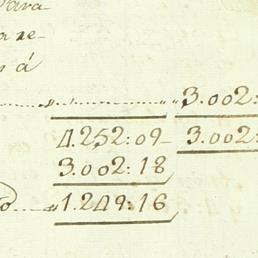 Para
a re-
n á
3.002:
4.252:09 3.002:
3.002:18
1.249:16